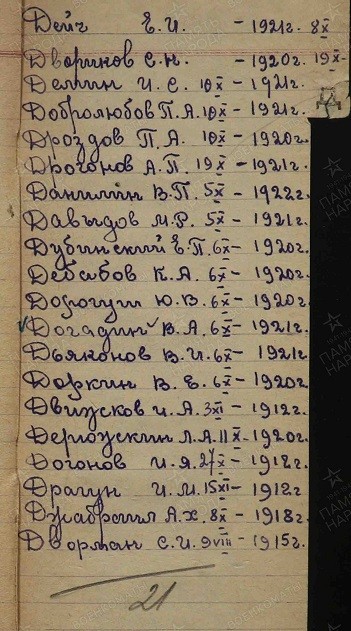 Дейч Е.И. - 1921г. 8 X
Дворинов С.Н. - 1920г. 19 X -
Демин И.С. 10 X - 1921г.
Добролюбов П.А. 10 X - 1921г.
Д
Дроздов П.А. 10 X - 1920г.
Дрогонов А.П. 19 X - 1921г.
Данилин В.П. 5 X - 1922г.
Давыдов М.Р. 5 X - 1921г.
Дубинский Е.П. 6 X - 1920г.
Дебабов К.А. 6 X - 1920г.
Дорогуш Ю.В. 6 X - 1920г.
√ Догадин В.А. 6 X - 1921г.
Дьяконов В.И. 6 X - 1921г
Доркин В.Е. 6 X - 1920г.
Двужсков И.А. 3 XI - 1912г.
Л.А. 11 X - 1920г.
Догонов И.Я. 27 X - 1918г.
Драгун И.М. 15 XI - 1912г
Джабраил А.Х. 8 X - 1918г.
Дворман С.И. 9 VIII - 1915г.
21